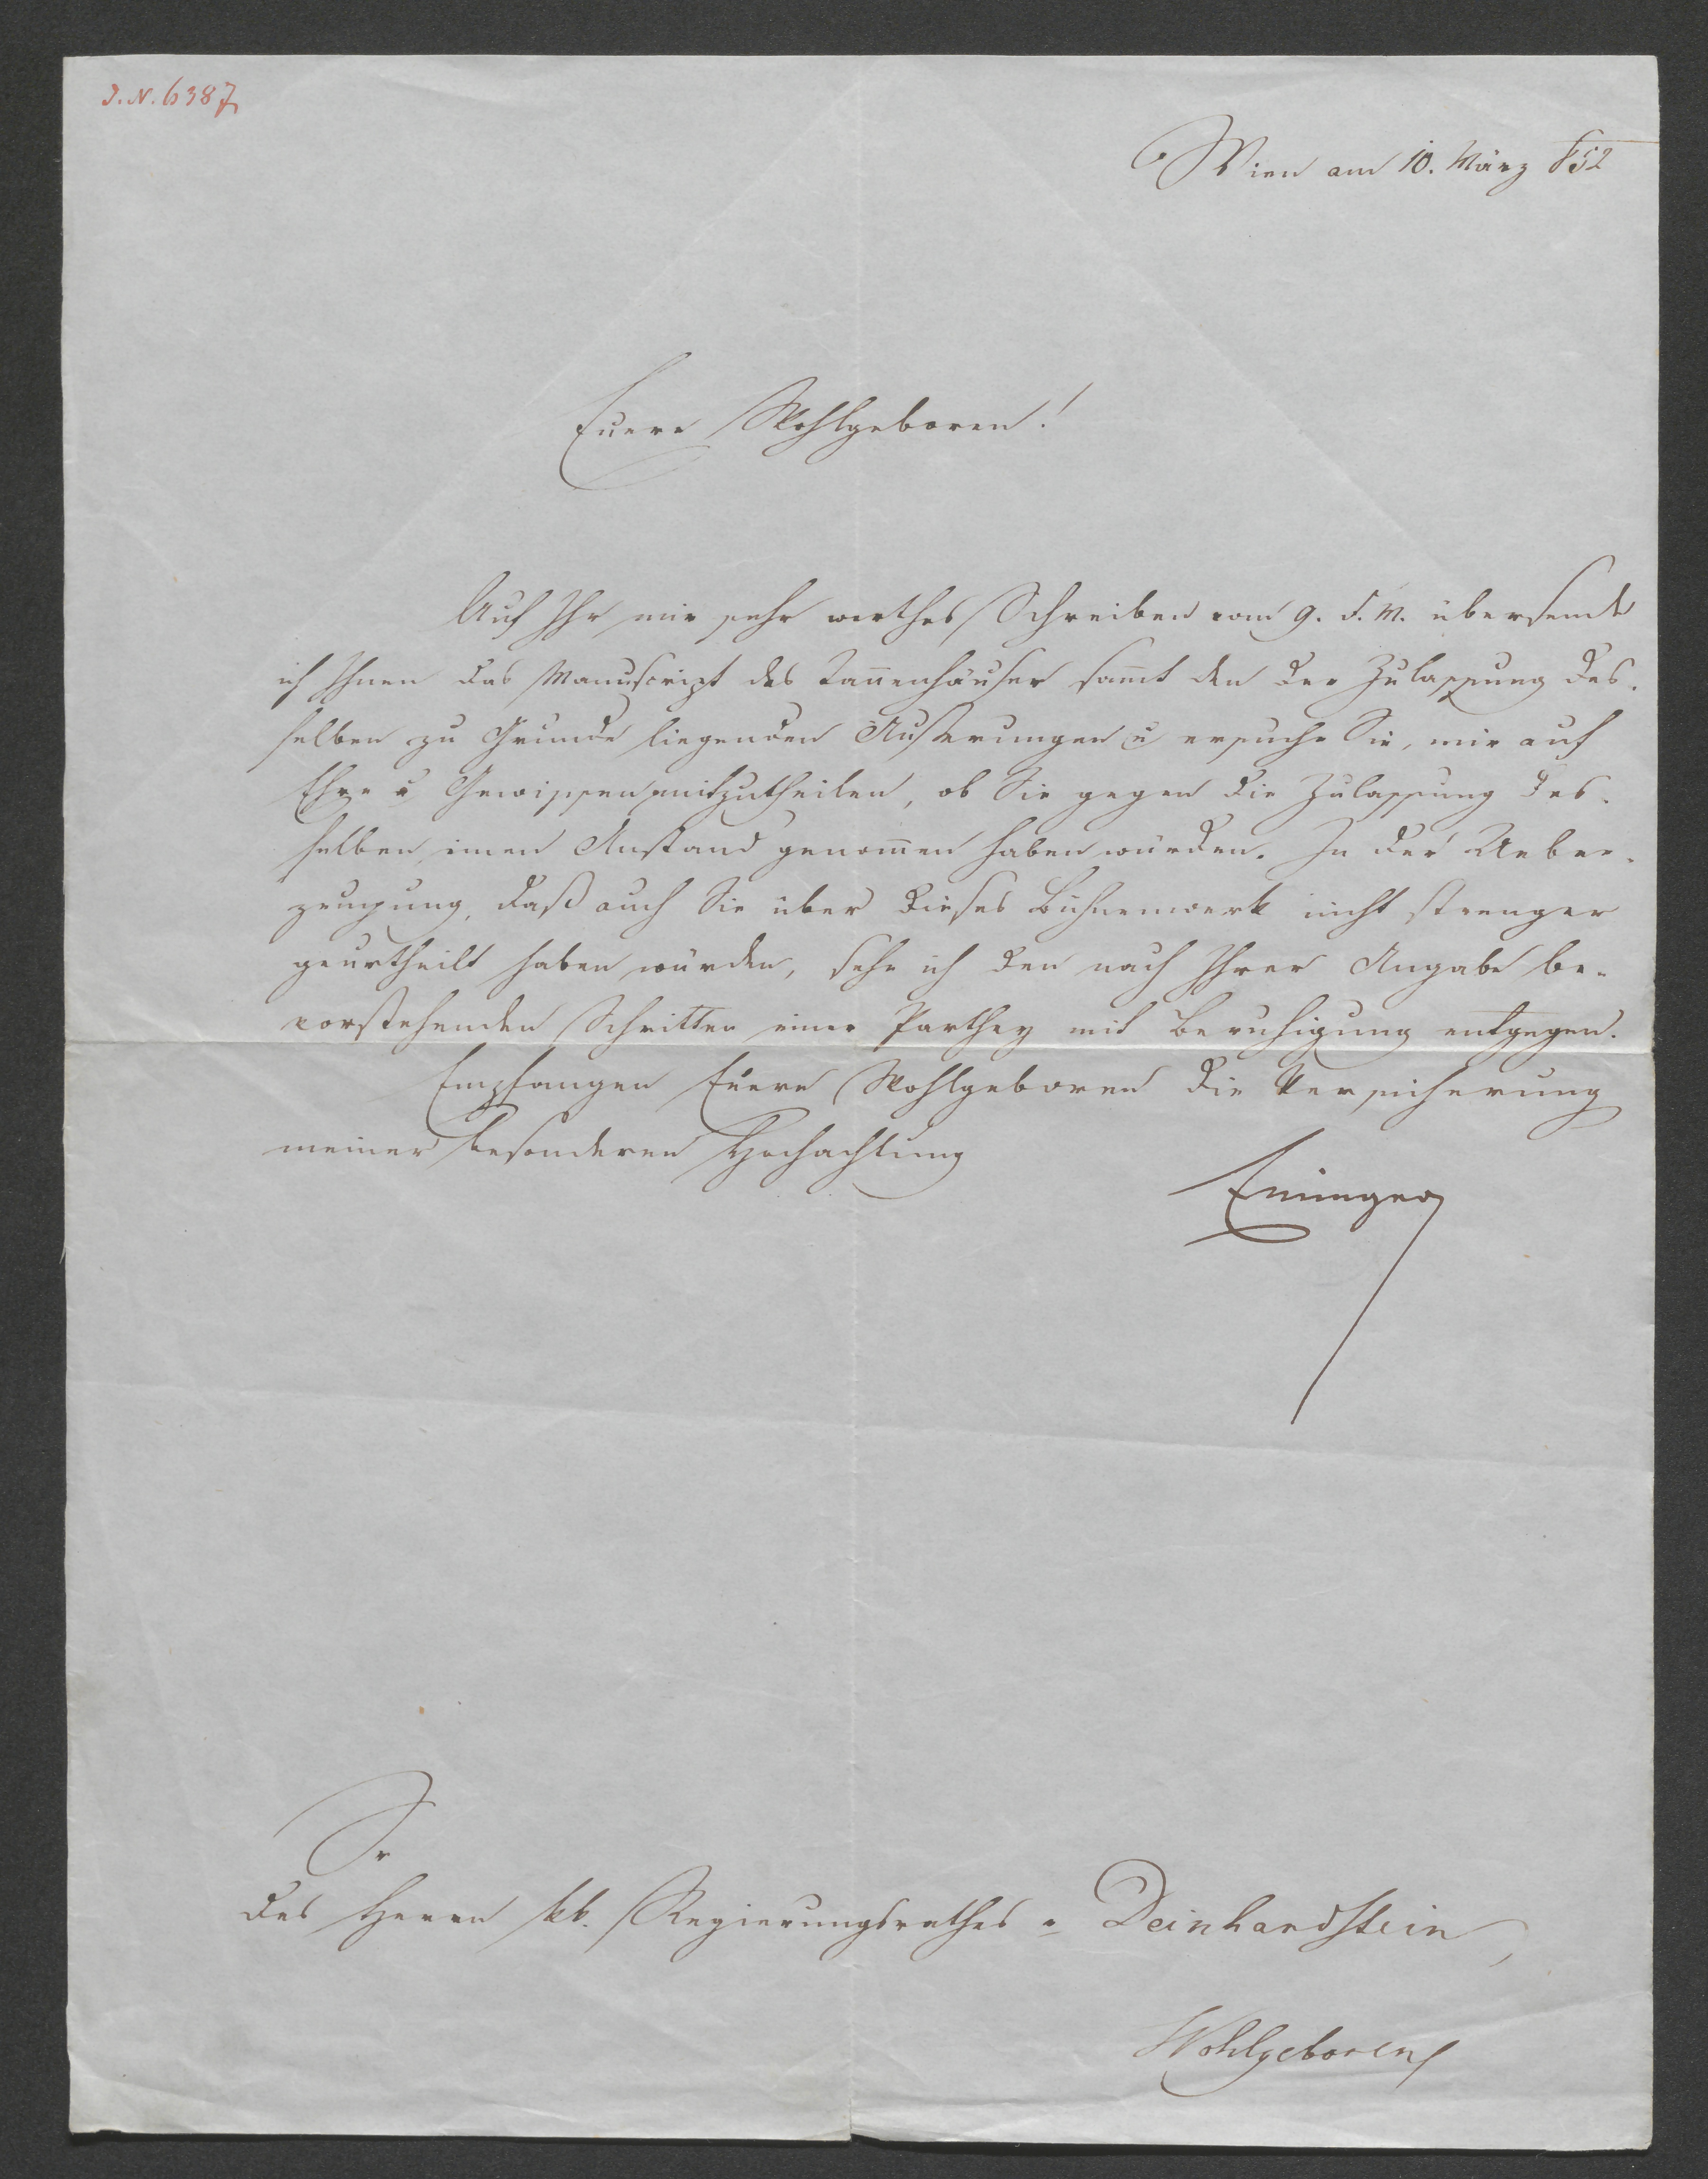 J. N. 6387
Wien am 10. März 852
Euere Wohlgeboren!
Auf Ihr mir sehr werthes Schreiben vom 9. d. M. übersende
ich Ihnen das Manuscript des Tan̄enhäuser sam̄t den der Zulassung des-
selben zu Grunde liegenden Äußerungen u ersuche Sie, mir auf
Ehre u Gewissen mitzutheilen, ob Sie gegen die Zulassung des-
selben einen Anstand genom̄en haben würden. In der Ueber-
zeugung, daß auch Sie über dieses Bühnenwerk nicht strenger
geurtheilt haben würden, sehe ich den nach Ihrer Angabe be-
vorstehenden Schritten einer Parthey mit Beruhigung entgegen.
Empfangen Euere Wohlgeboren die Versicherung
meiner besonderen Hochachtung
Eminger
Sr
des Herrn kk. Regierungsrathes Deinhardstein,
Wohlgeboren